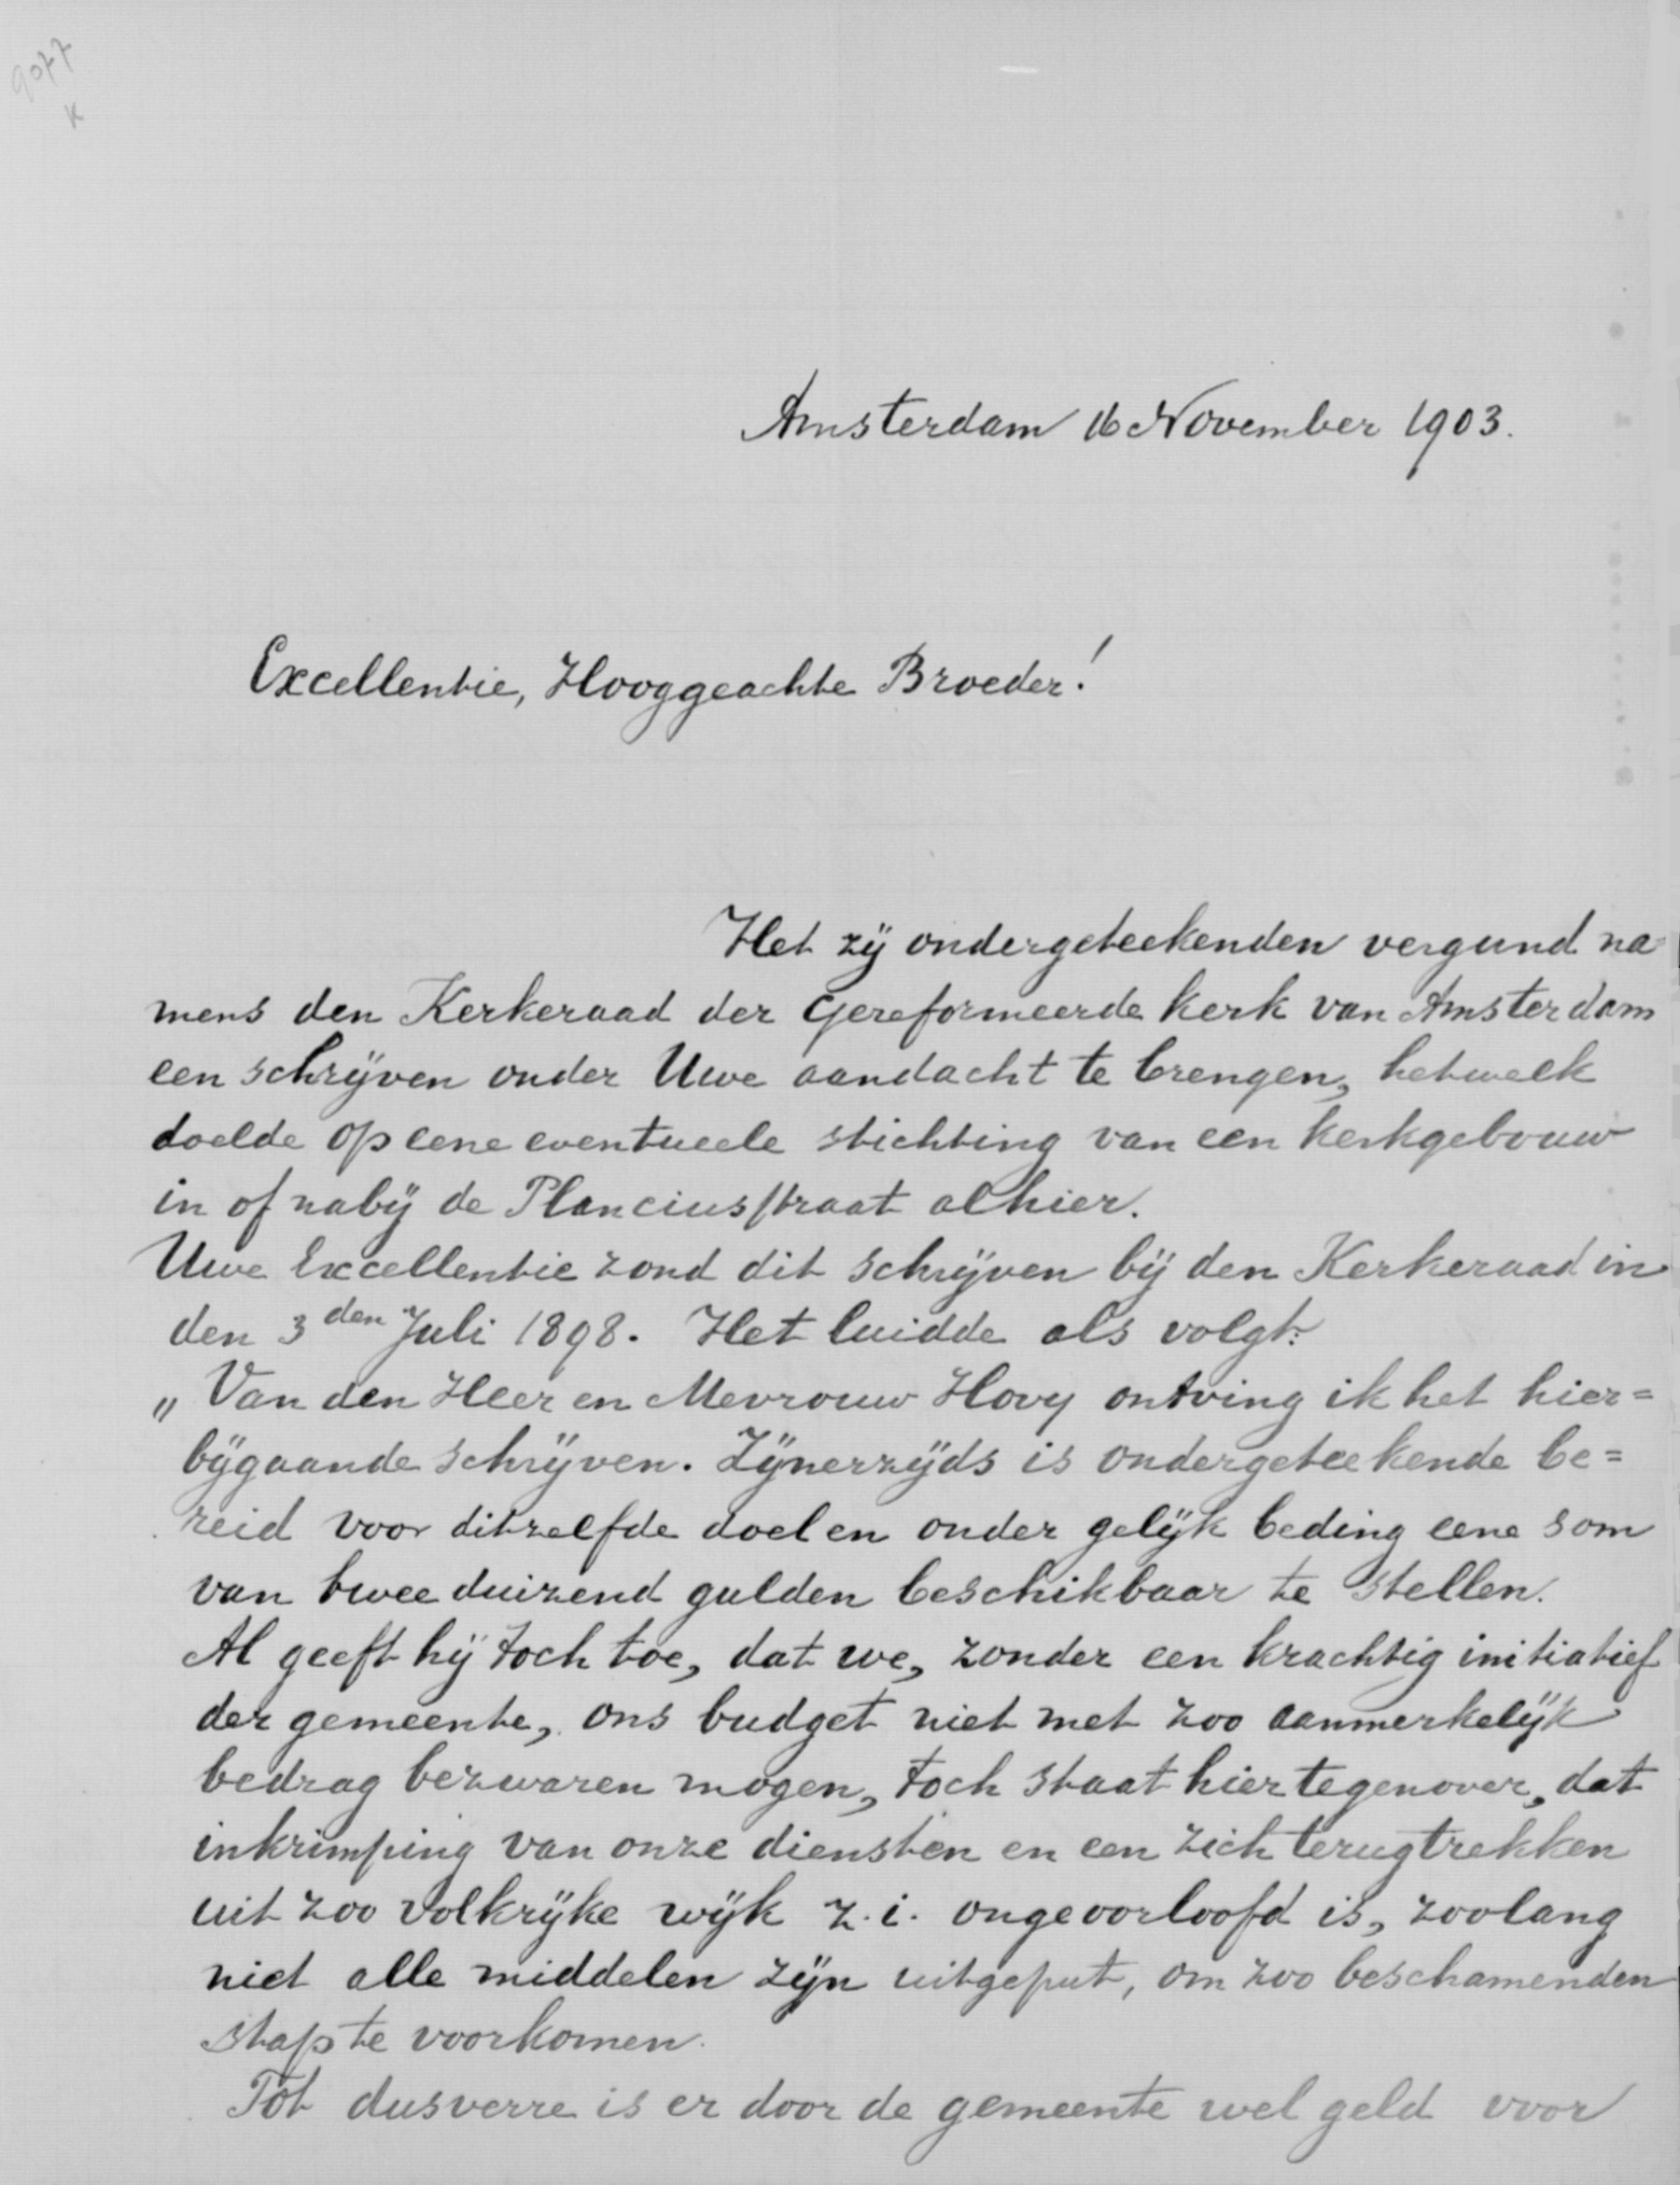 9077
K
Amsterdam 16 November 1903.
Excellentie, Hooggeachte Broeder!
Het zij ondergeteekenden vergund na
mens den Kerkeraad der Gereformeerde kerk van Amsterdam
een schrijven onder Uwe aandacht te brengen, hetwelk
doelde op eene eventueele stichting van een kerkgebouw
in of nabij de Planciusstraat alhier.
Uwe Excellentie zond dit schrijven bij den Kerkeraad in
den 3den Juli 1898. Het luidde als volgt:
„Van den Heer en Mevrouw Hovy ontving ik het hier=
bijgaande schrijven. Zijnerzijds is ondergeteekende be=
reid voor ditzelfde doel en onder gelijk beding eene som
van twee duizend gulden beschikbaar te stellen.
Al geeft hij toch toe, dat we, zonder een krachtig initiatief
der gemeente, ons budget niet met zoo aanmerkelijk
bedrag bezwaren mogen, toch staat hier tegenover, dat
inkrimping van onze diensten en een zich terugtrekken
uit zoo volkrijke wijk z.i. ongeoorloofd is, zoolang
niet alle middelen zijn uitgeput, om zoo beschamenden
stap te voorkomen.
Tot dusverre is er door de gemeente wel geld voor